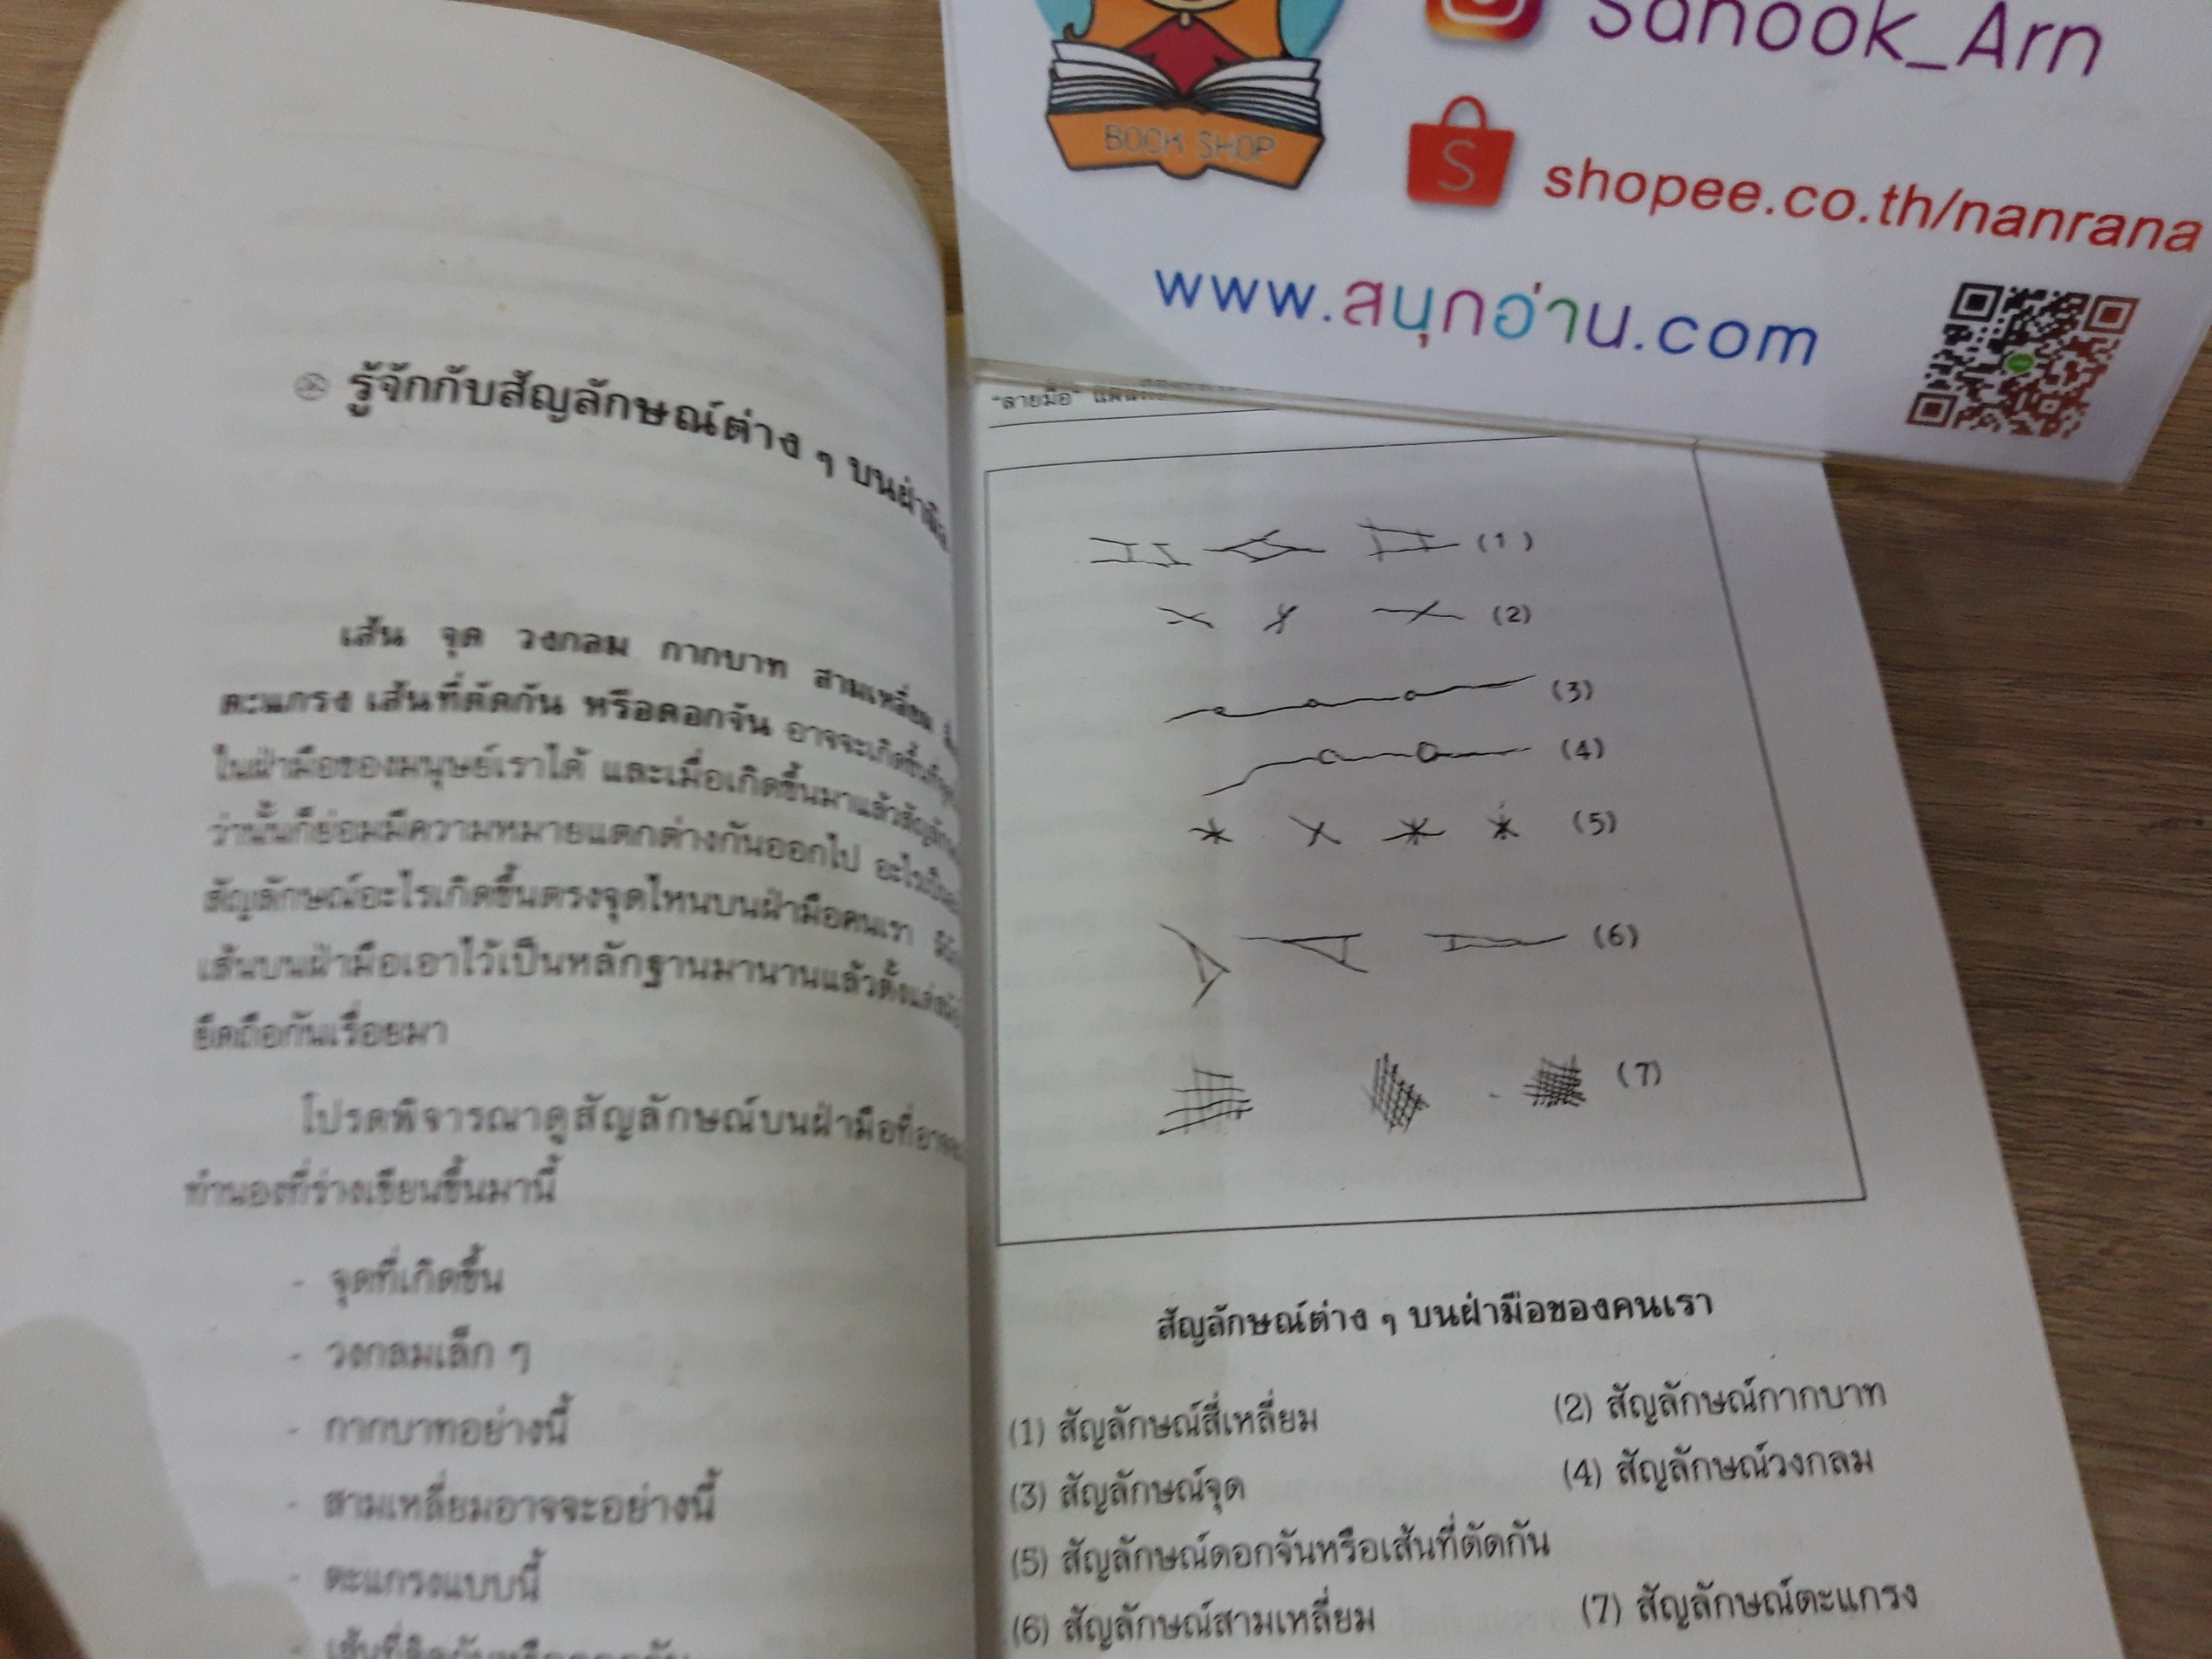 Sanook_Arn
BOOK SHOP
S
shopee.co.th/nanrana
www.สนุกอ่าน.com
รู้จักกับสัญลักษณ์ต่าง ๆ บนฝ่ามือ
เส้น จุด วงกลม กากบาท สามเหลี่ยม
ตะแกรง เส้นที่ตัดกัน หรือดอกจัน อาจจะเกิดขึ้น
ในฝ่ามือของมนุษย์เราได้ และเมื่อเกิดขึ้นมาแล้ว
ว่านั้นก็ย่อมมีความหมายแตกต่างกันออกไป
สัญลักษณ์อะไรเกิดขึ้นตรงจุดไหนบนฝ่ามือคนเรา
เส้นบนฝ่ามือเอาไว้เป็นหลักฐานมานานแล้วตั้งแต่
ยึดถือกันเรื่อยมา
โปรดพิจารณาดูสัญลักษณ์บนฝ่ามือที่
ทำนองที่ร่างเขียนขึ้นมานี้
- จุดที่เกิดขึ้น
- วงกลมเล็ก ๆ
- กากบาทอย่างนี้
- สามเหลี่ยมอาจจะอย่างนี้
- ตะแกรงแบบนี้
"ลายมือ"
(1)
(2)
(3)
(4)
(5)
(6)
(7)
สัญลักษณ์ต่าง ๆ บนฝ่ามือของคนเรา
(1) สัญลักษณ์สี่เหลี่ยม (2) สัญลักษณ์กากบาท
(3) สัญลักษณ์จุด (4) สัญลักษณ์วงกลม
(5) สัญลักษณ์ดอกจันหรือเส้นที่ตัดกัน
(6) สัญลักษณ์สามเหลี่ยม (7) สัญลักษณ์ตะแกรง